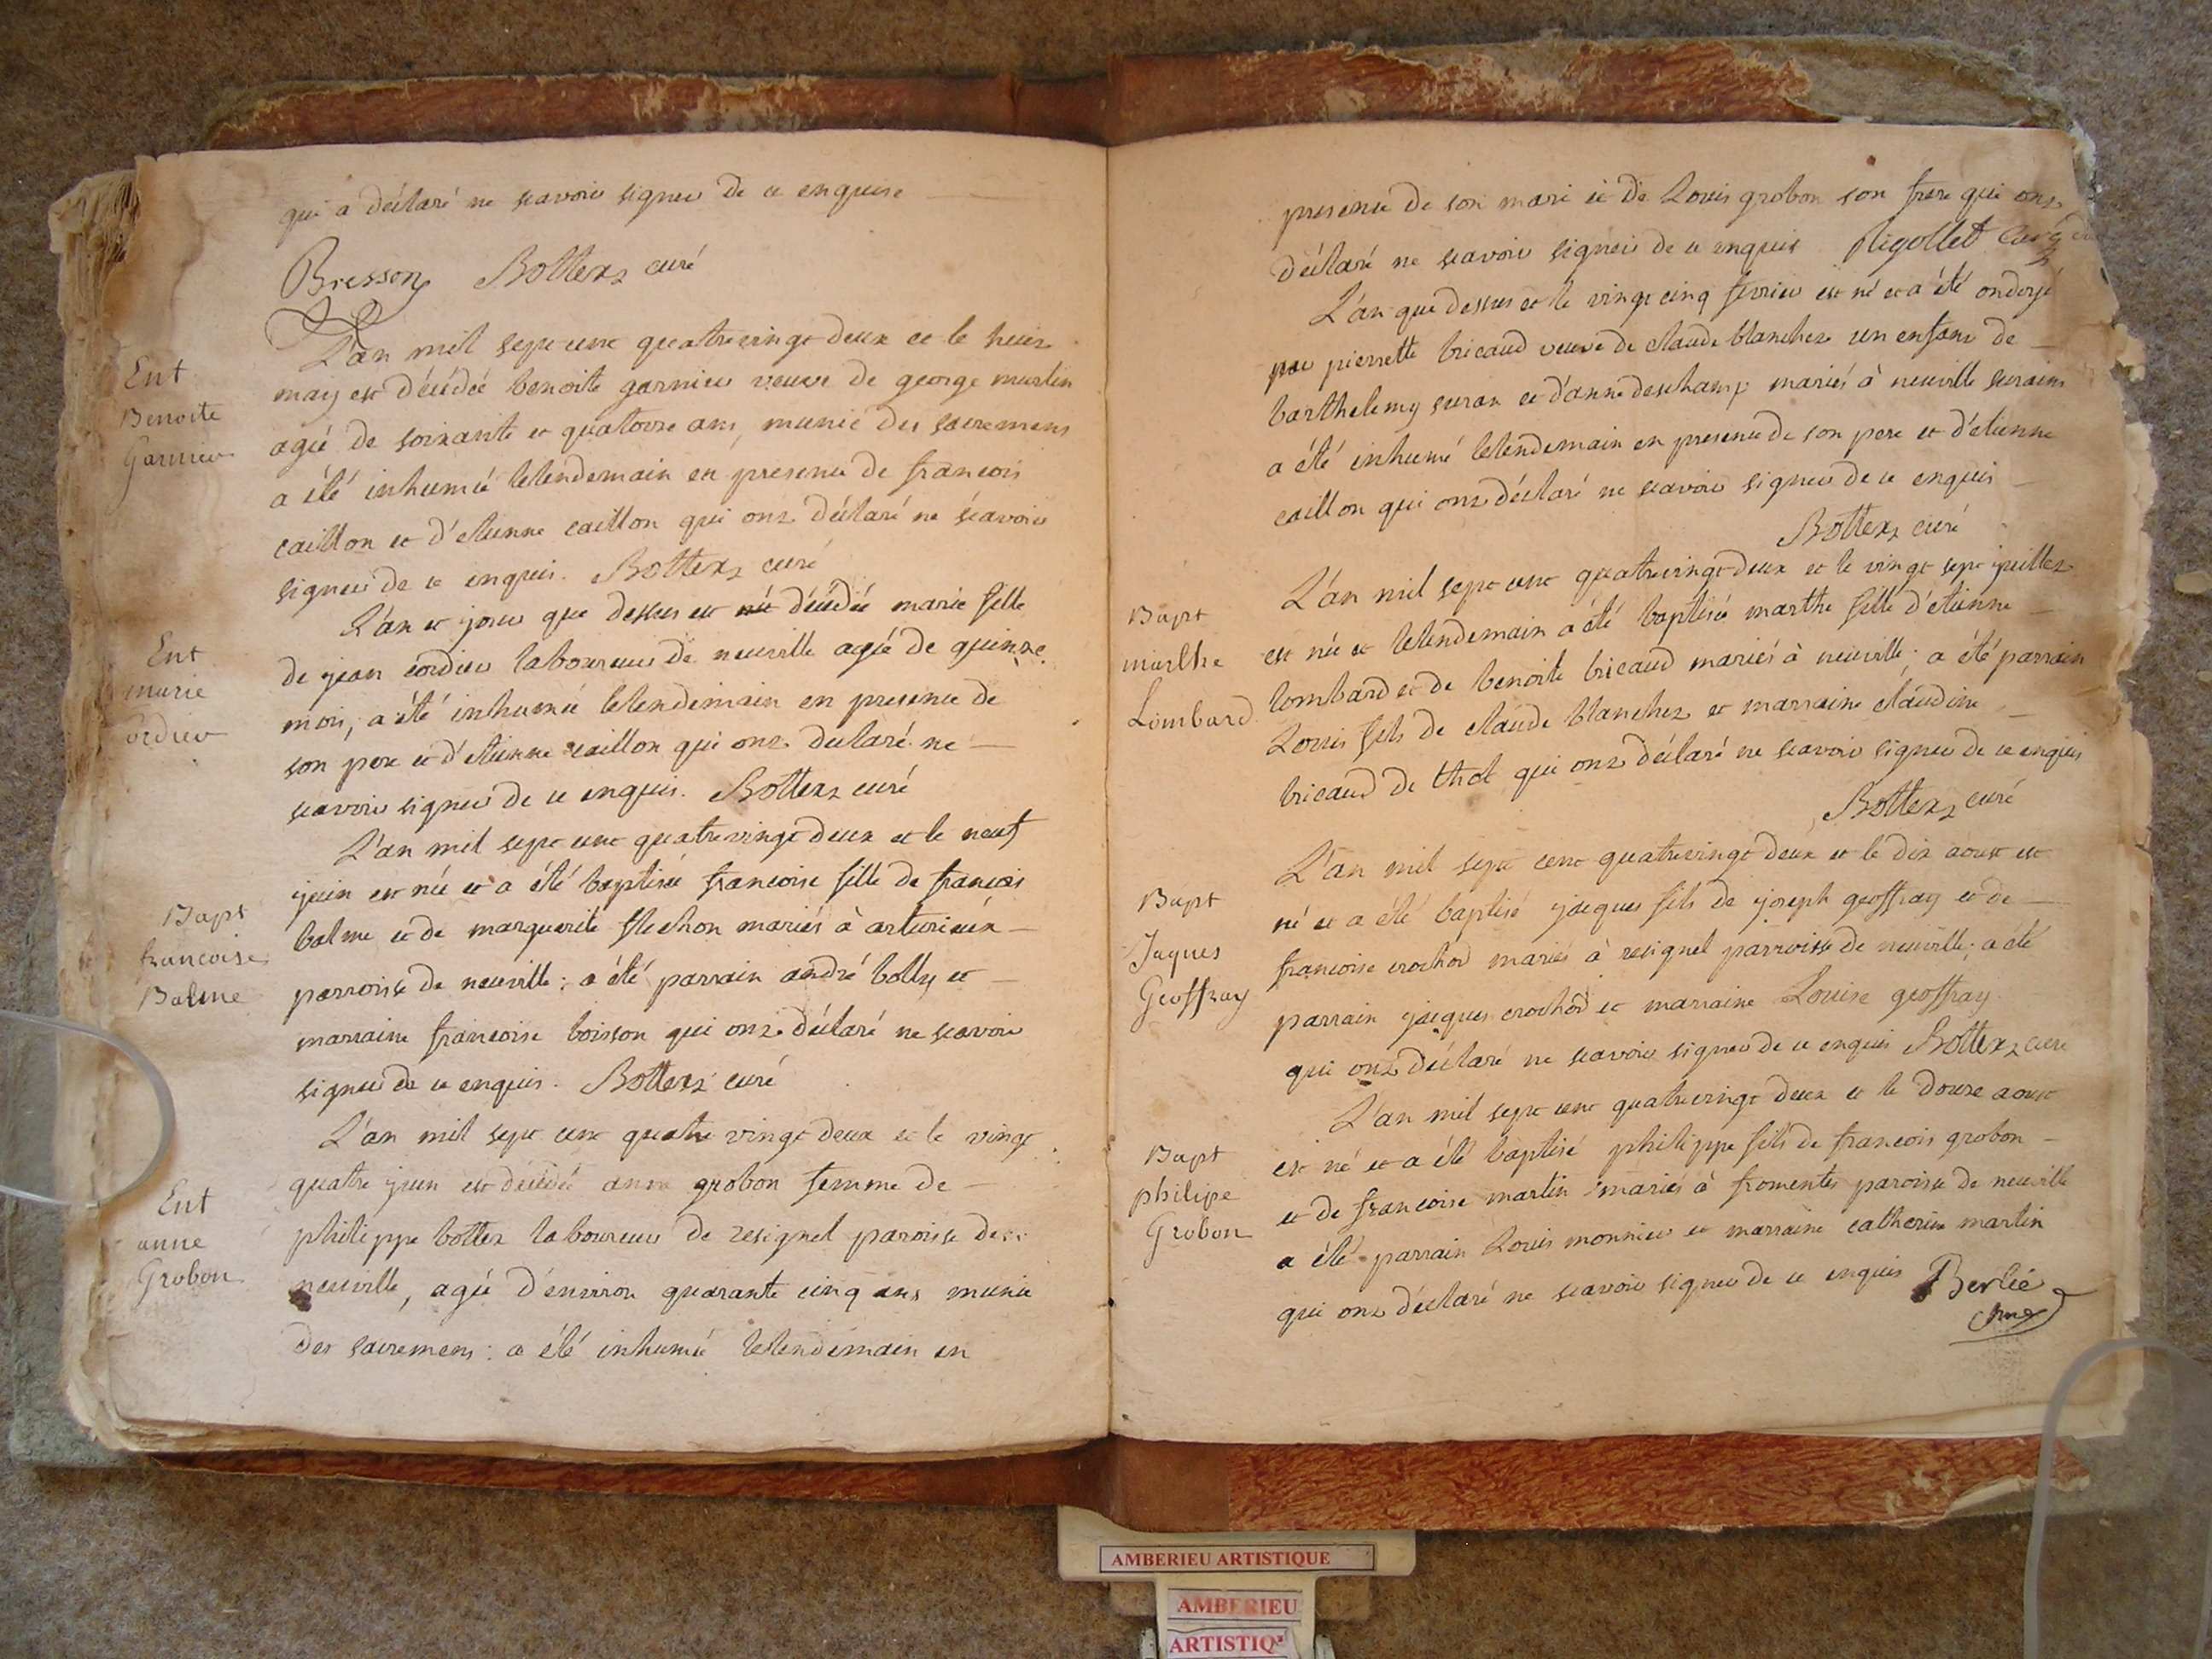 qui a déclaré ne scavoir signer de ce enquise
Bressony Bottex curé
L'an mil sept cent quatre vingt deux et le huit
Ent
may est décédée benoite garnier veuve de george martin
Benoite
agée de soixante et quatorze ans, munie des sacremens
Garnier
a été inhumée lelendemain en presence de francois
caillon et d'etienne caillon qui ont déclaré ne scavoir
signer de ce enquis. Bottex curé
L'an et jour que dessus est décédée marie fille
Ent
de jean cordier laboureur de neuville agée de quinze
marie
mois, a été inhumée lelendemain en presence de
cordier
son pere et d'etienne caillon qui ont declaré ne
scavoir signer de ce enquis. Bottex curé
L'an mil sept cent quatre vingt deux et le neuf
juin est née et a été baptisée francoise fille de francois
Bapt
balme et de marguerite flechon mariés à arturieux
francoise
parroisse de neuville; a été parrain andré bolly et
Balme
marraine francoise boisson qui ont déclaré ne scavoir
signer de ce enquis. Bottex curé
L'an mil sept cent quatre vingt deux et le vingt
quatre juin est décédée anne grobon femme de
Ent
philippe bottex laboureur de resignel paroisse de
anne
neuville, agée d'environ quarante cinq ans munie
Grobon
des sacremens: a été inhumée lelendemain en
presence de son mari et de Louis grobon son frere qui ont
déclaré ne scavoir signer de ce enquis Rigollet curé
L'an que dessus et le vingt cinq fevrier est né et a été ondoyé
par pierrette bricaud veuve de claude blanchet un enfant de
barthelemy suran et d'anne deschamp mariés à neuville
a été inhumé lelendemain en presence de son pere et d'etienne
caillon qui ont déclaré ne scavoir signer de ce enquis
Bottex curé
L'an mil sept cent quatre vingt deux et le vingt sept juillet
Bapt
est née et lelendemain a été baptisée marthe fille d'etienne
marthe
lombard et de benoite bricaud mariés à neuville; a été parrain
Lombard
Louis fils de claude blanchet et marraine claudine
bricaud de thol qui ont déclaré ne scavoir signer de ce enquis
Bottex curé
L'an mil sept cent quatre vingt deux et le dix aoust est
Bapt
né et a été baptisé jacques fils de joseph geoffray et de
Jaques
francoise crochod mariés à resignel parroisse de neuville; a été
Geoffray
parrain jacques crochod et marraine Louise geoffray
qui ont déclaré ne scavoir signer de ce enquis Bottex curé
L'an mil sept cent quatre vingt deux et le douze aoust
Bapt
est né et a été baptisé philippe fils de francois grobon
philipe
et de francoise martin mariés à fromentes paroisse de neuville
Grobon
a été parrain Louis monnier et marraine catherine martin
qui ont déclaré ne scavoir signer de ce enquis Berlié
AMBERIEU ARTISTIQUE
AMBERIEU
ARTISTIQ